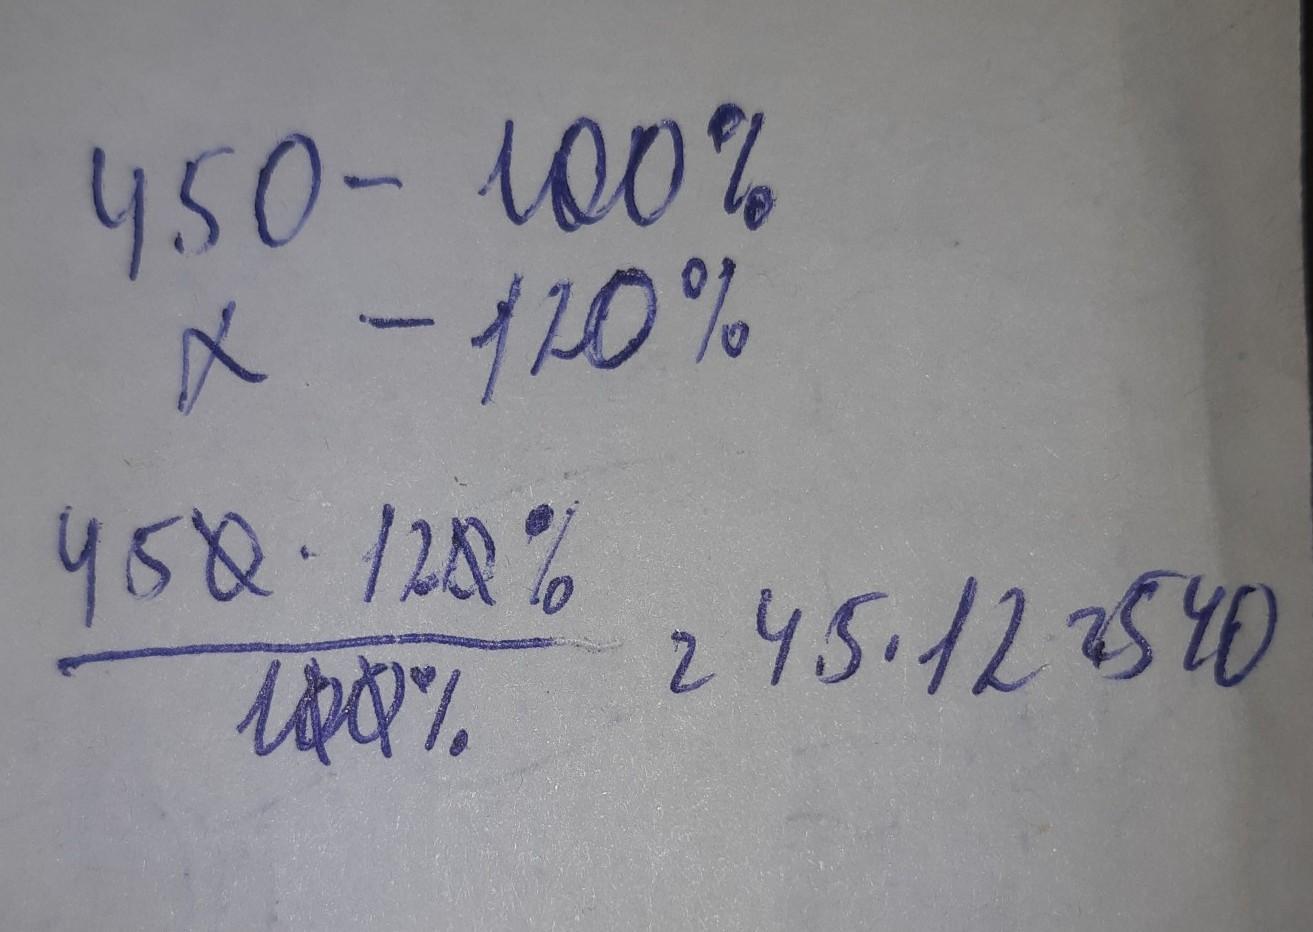 450 - 100%
x - 120%
450 · 120%
100%
= 45 · 12 = 540